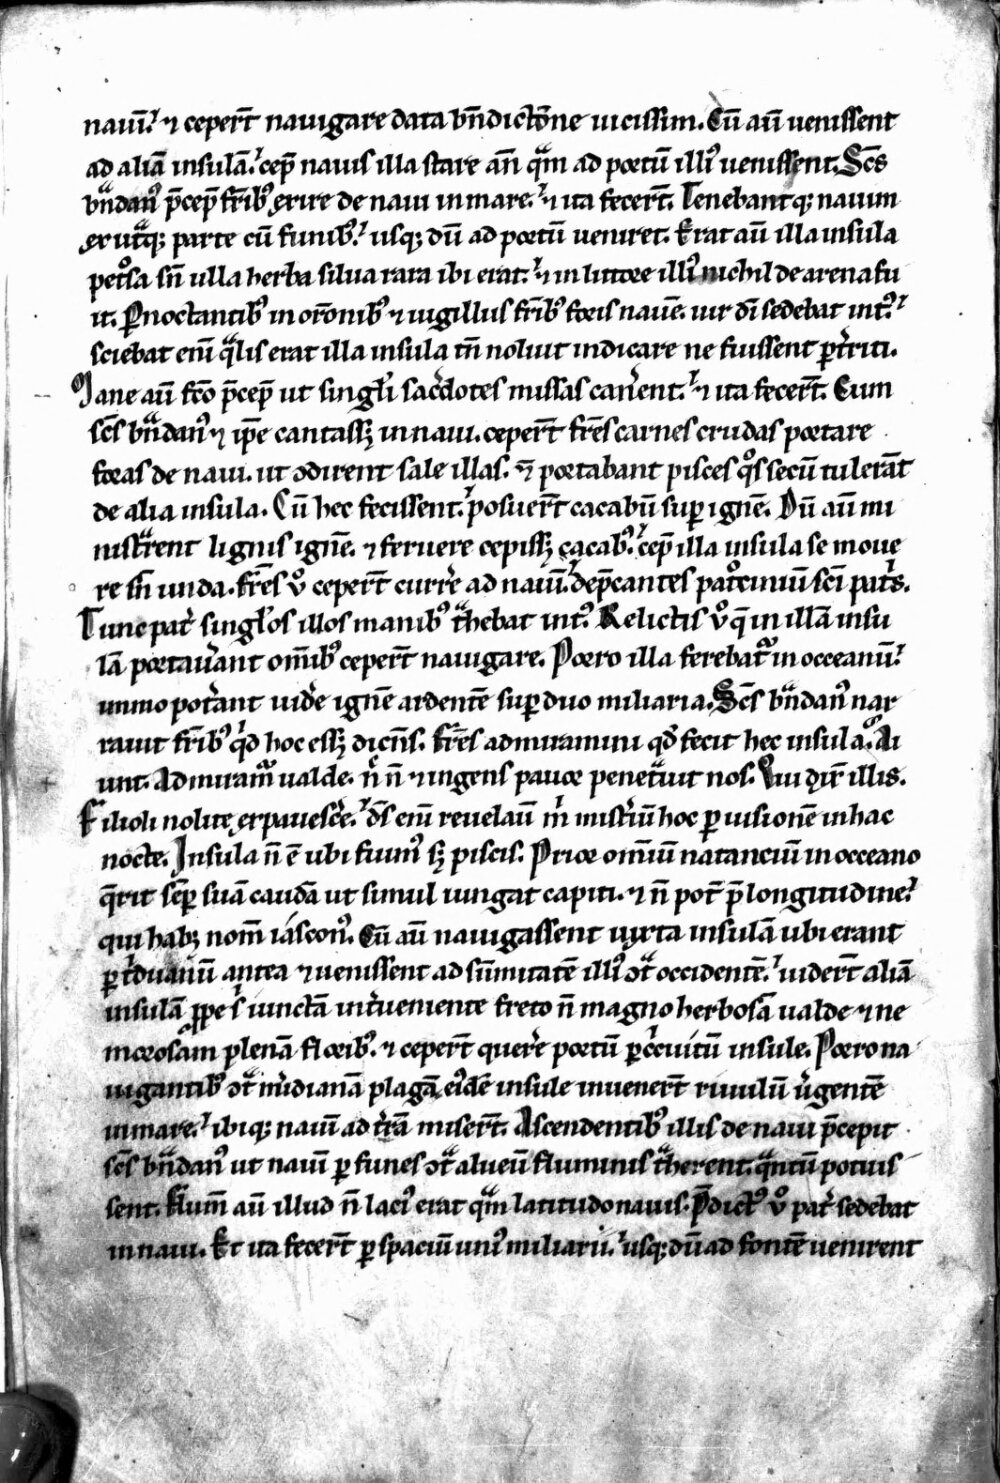 nauī. ⁊ ceper̄t nauigare data bn̄dictōne uicissim. Cū aū uenissent
ad aliā insulā. cep̄ nauis illa stare an̄ qͣm ad portū illiꝰ uenissent. Sc̄s
bͣndanꝰ p̄cep̄ fr̄ibꝰ exire de naui in mare. ⁊ ita fecer̄t. Tenebantq; nauim
ex utͣq; parte cū funibꝰ. usq; dū ad portū ueniret. Erat aū illa insula
petͦsa sn̄ ulla herba silua rara ibi erat. ⁊ in littore illiꝰ nichil de arena fu
it. P̱noctantibꝰ in or̄onibꝰ ⁊ uigiliis fr̄ibꝰ foris nauē. uir dī sedebat intꝰ.
sciebat enī qͣlis erat illa insula tn̄ noluit indicare ne fuissent ꝑtͥriti.
Mane aū fc̄o p̄cep̄ ut singl̄i sac̓dotes missas can̓ent. ⁊ ita fecer̄t. Cum
sc̄s bͣndanꝰ ⁊ ip̄e cantass; in naui. ceper̄t fr̄es carnes crudas portare
foras de naui. ut ↄdirent sale illas. n̄ portabant pisces qͦs secū tuler̄nt
de alia insula. Cū hec fecissent. posuer̄t cacabū suꝑ ignē. Dū aū mi
nistͣrent lignis ignē. ⁊ feruere cepiss; cacabꝰ. cep̄ illa insula se moue
re sīc unda. fr̄es ūͦ ceper̄t curr̓e ad nauī. dep̄cantes patͦciniū sc̄i patͥs.
Tunc pat̓ singl̓os illos manibꝰ tͣhebat intꝰ. Relictis ūͦ q̄ in illā insu
lā portau̓ant om̄ibꝰ ceper̄t nauigare. Porro illa ferebatͣ in occeanū.
unmo pot̓ant uid̓e ignē ardentē suꝑ duo miliaria. Sc̄s bͣndanꝰ nar
rauit fr̄ibꝰ qͥd hoc ess; dicn̄s. Fr̄es admiramini qd̓ fecit hec insula. Ai
unt. Admiramͣ ualde. nͦ n̄ ⁊ ingens pauor penetͣuit nos. Qui dix̄ illis.
Filioli nolite expauesc̓e. ds̄ enī reuelauͥ m̄ mist̓iū hoc ꝑ uisionē in hac
nocte. Insula n̄ ē ubi fuimꝰ s; piscis. Prior om̄iū natanciū in occeano
q̄rit semꝑ suā caudā ut simul iungat capiti. ⁊ n̄ pot̄ p̄ longitudine.
qui hab; nom̄ iasconꝰ. Cū aū nauigassent iuxta insulā ubi erant
ꝑ tͥduanū antea ⁊ uenissent ad sūmitatē illiꝰ ↄtͣ occidentē. uider̄t aliā
insulā ꝓpe sͥ iunctā int̓ueniente freto n̄ magno herbosā ualde ⁊ ne
morosam plenā floribꝰ. ⁊ ceper̄t quer̓e portū ꝑ cͥcuitū insule. Porro na
uigantibꝰ ↄtͣ m̓idianam plagā eidē insule inuener̄t riuulū u̓gentē
in mare. ibiq; nauī ad tr̄ā miser̄t. Ascendentibꝰ illis de naui p̄cepit
sc̄s bͣndanꝰ ut nauī ꝑ funes ↄtͣ alueū fluminis tͣherent. qͣntū potuis
sent. Flum̄ aū illud n̄ laciꝰ erat qͣm latitudo nauis. P̄dictꝰ ūͦ pat̓ sedebat
in naui. Et ita fecer̄t ꝑ spaciū uniꝰ miliarii. usq; dū ad fontē uenirent